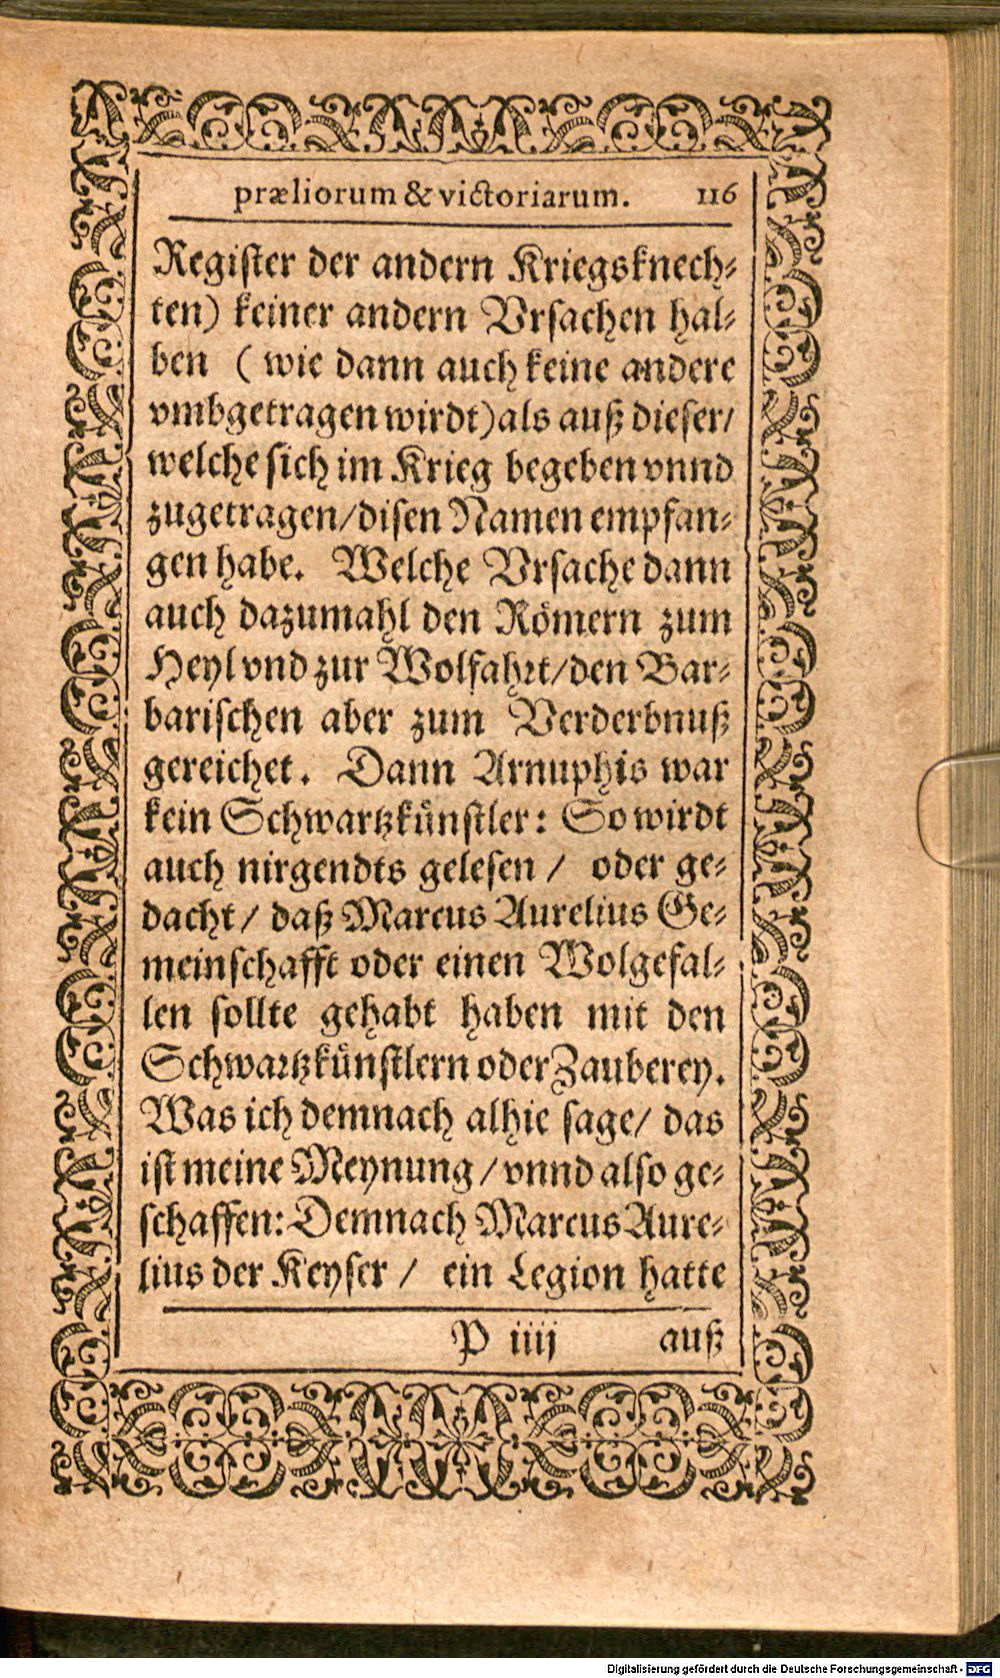 præliorum & victoriarum. 116
Register der andern Kriegsknech⸗
ten) keiner andern Vrsachen hal⸗
ben ( wie dann auch keine andere
vmbgetragen wirdt) als auß dieser/
welche sich im Krieg begeben vnnd
zugetragen/disen Namen empfan⸗
gen habe. Welche Vrsache dann
auch dazumahl den Römern zum
Heyl vnd zur Wolfahrt/den Bar⸗
barischen aber zum Verderbnuß
gereichet. Dann Arnuphis war
kein Schwartzkünstler: So wirdt
auch nirgendts gelesen / oder ge⸗
dacht/ daß Marcus Aurelius Ge⸗
meinschafft oder einen Wolgefal⸗
len sollte gehabt haben mit den
Schwartzkünstlern oder Zauberey.
Was ich demnach alhie sage/ das
ist meine Meynung /vnnd also ge⸗
schaffen: Demnach Marcus Aure⸗
lius der Keyser / ein Legion hatte
P iiij auß
Digitalisierung gefördert durch die Deutsche Forschungsgemeinschaft - DFG